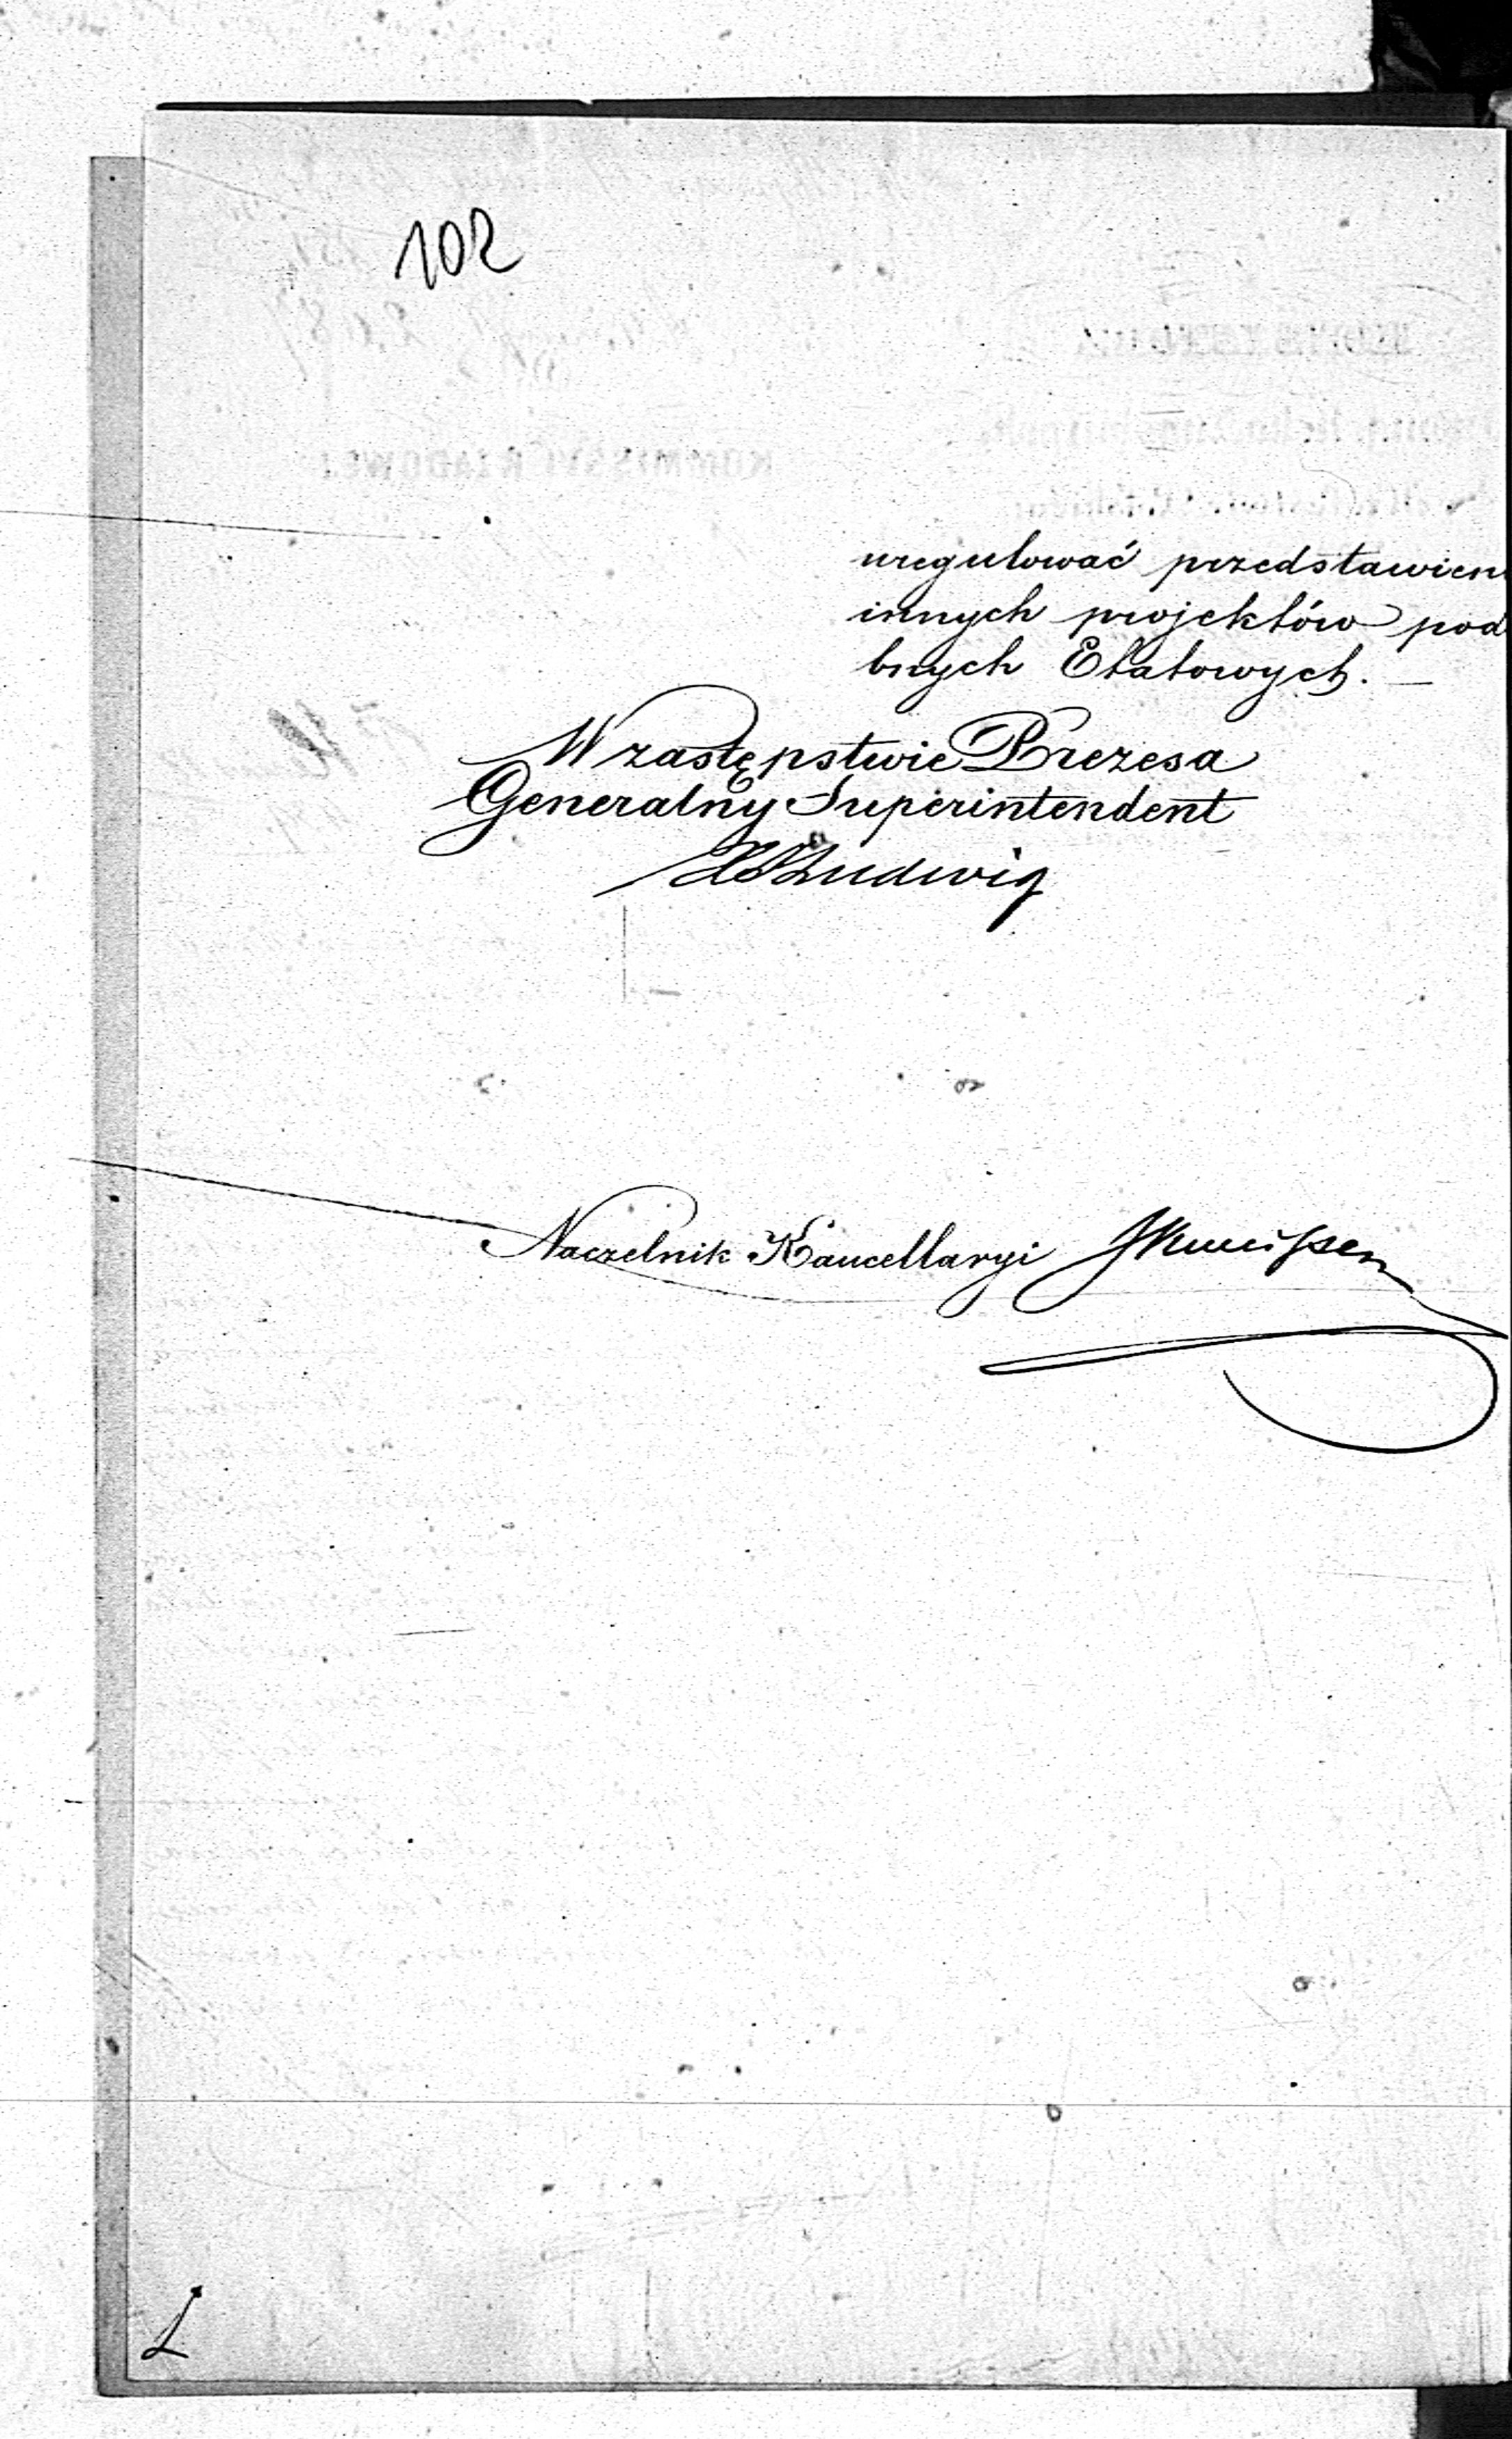 102
uregulować przedstawien
innych projektów pod
bnych Etatowych. —
W zastępstwie Prezesa
Generalny Superintendent
Ludwig
Naczelnik Kancellaryi
L